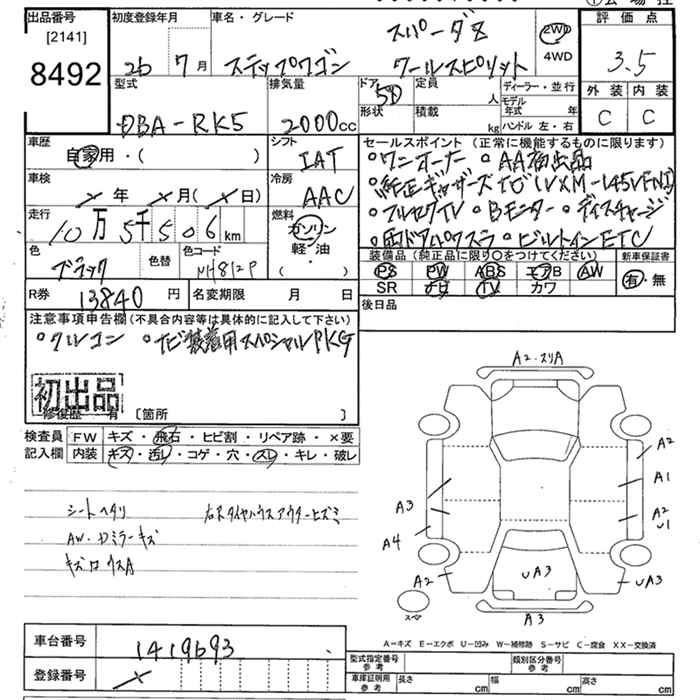 出品番号
[2141]
8492
初度登録年月
26 7月
車名・グレード
スパーダZ
ステップワゴン クールスピリット
2WD
4WD
評価点
3.5
外装 内装
C C
型式
DBA-RK5
排気量
2000cc
ドア 5D
形状
定員 人
積載 kg
ディーラー・並行
モデル年式 年
ハンドル 左・右
車歴
自家用・( )
シフト
IAT
セールスポイント(正常に機能するものに限ります)
○ワンオーナー ○AA初出品
○純正ギャザーズナビ(VXM-145VFNI)
○フルセグTV ○Bモニター ○ディスチャージ
○両ドアパワスラ ○ビルトインETC
車検
年 月( 日)
冷房
AAC
走行
10万5千506km
燃料
ガソリン
軽・油
・( )
色
ブラック
色替
色コード
NH812P
装備品(純正品に限り○をつけてください)
PS PW ABS エアB AW
SR ナビ TV カワ
新車保証書
有・無
R券 13840円
名変期限 月 日
後日品
注意事項申告欄(不具合内容等は具体的に記入して下さい)
○クルコン ○ナビ装着用スペシャルPKG
初出品
修復歴 有 [箇所 ]
検査員記入欄
FW キズ・飛石・ヒビ割・リペア跡・×要
内装 キズ・汚レ・コゲ・穴・スレ・キレ・破レ
シートヘタリ 右Rタイヤハウスアウターヒズミ
AW・Dミラーキズ
A2・スリA
A2
A1
A2
U1
A3
A4
A2
UA3
UA3
A3
スペア
車台番号 1419693
登録番号
A-キズ E-エクボ U-凹み W-補修跡 S-サビ C-腐食 XX-交換済
型式指定番号 参考
類別区分番号 参考
車庫証明用 参考
長さ cm 幅 cm 高さ cm